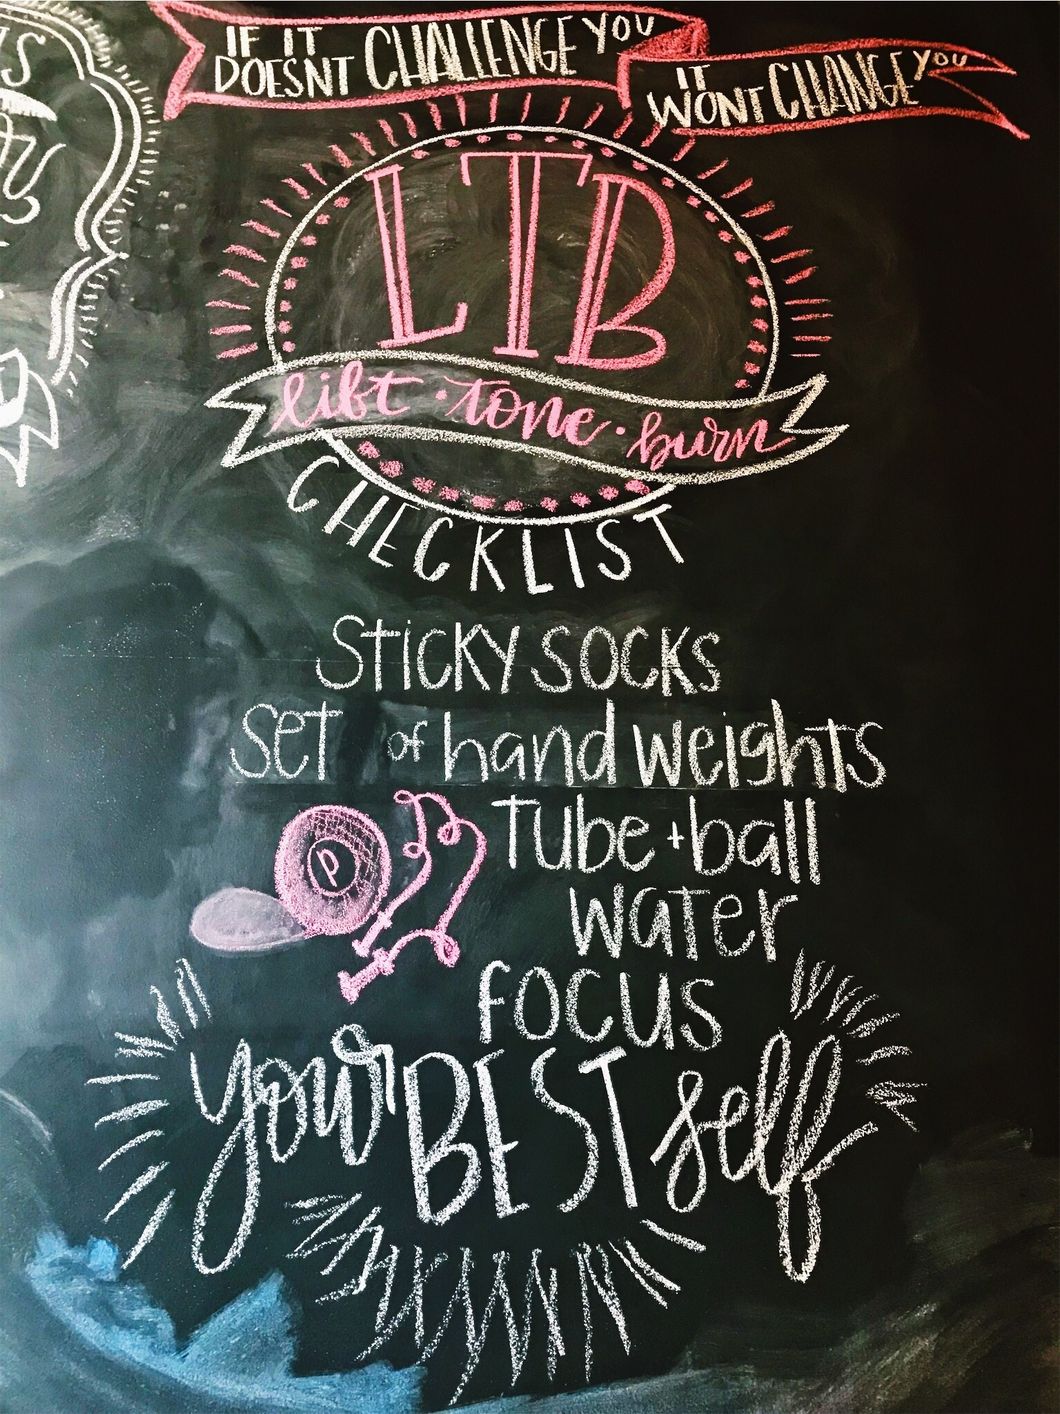 IF IT
DOESNT CHALLENGE YOU
IT
WONT CHANGE YOU
LTB
lift · tone · burn
CHECKLIST
Sticky SOCKS
SET of hand weights
Tube + ball
p
water
FOCUS
your BEST self